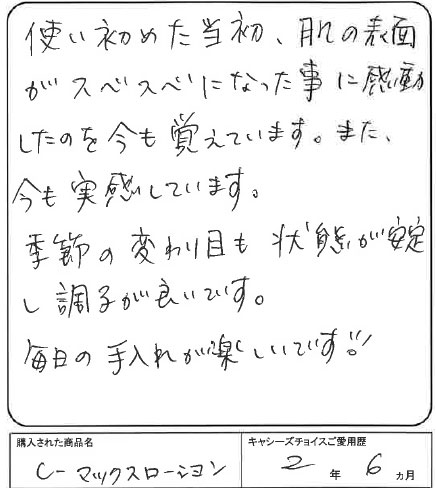 使い初めた当初、肌の表面
がスベスベになった事に感動
したのを今も覚えています。また、
今も実感しています。
季節の変わり目も状態が安定
し調子が良いです。
毎日の手入れが楽しいです!!
購入された商品名
C-マックスローション
キャシーズチョイスご愛用歴
2年 6ヵ月